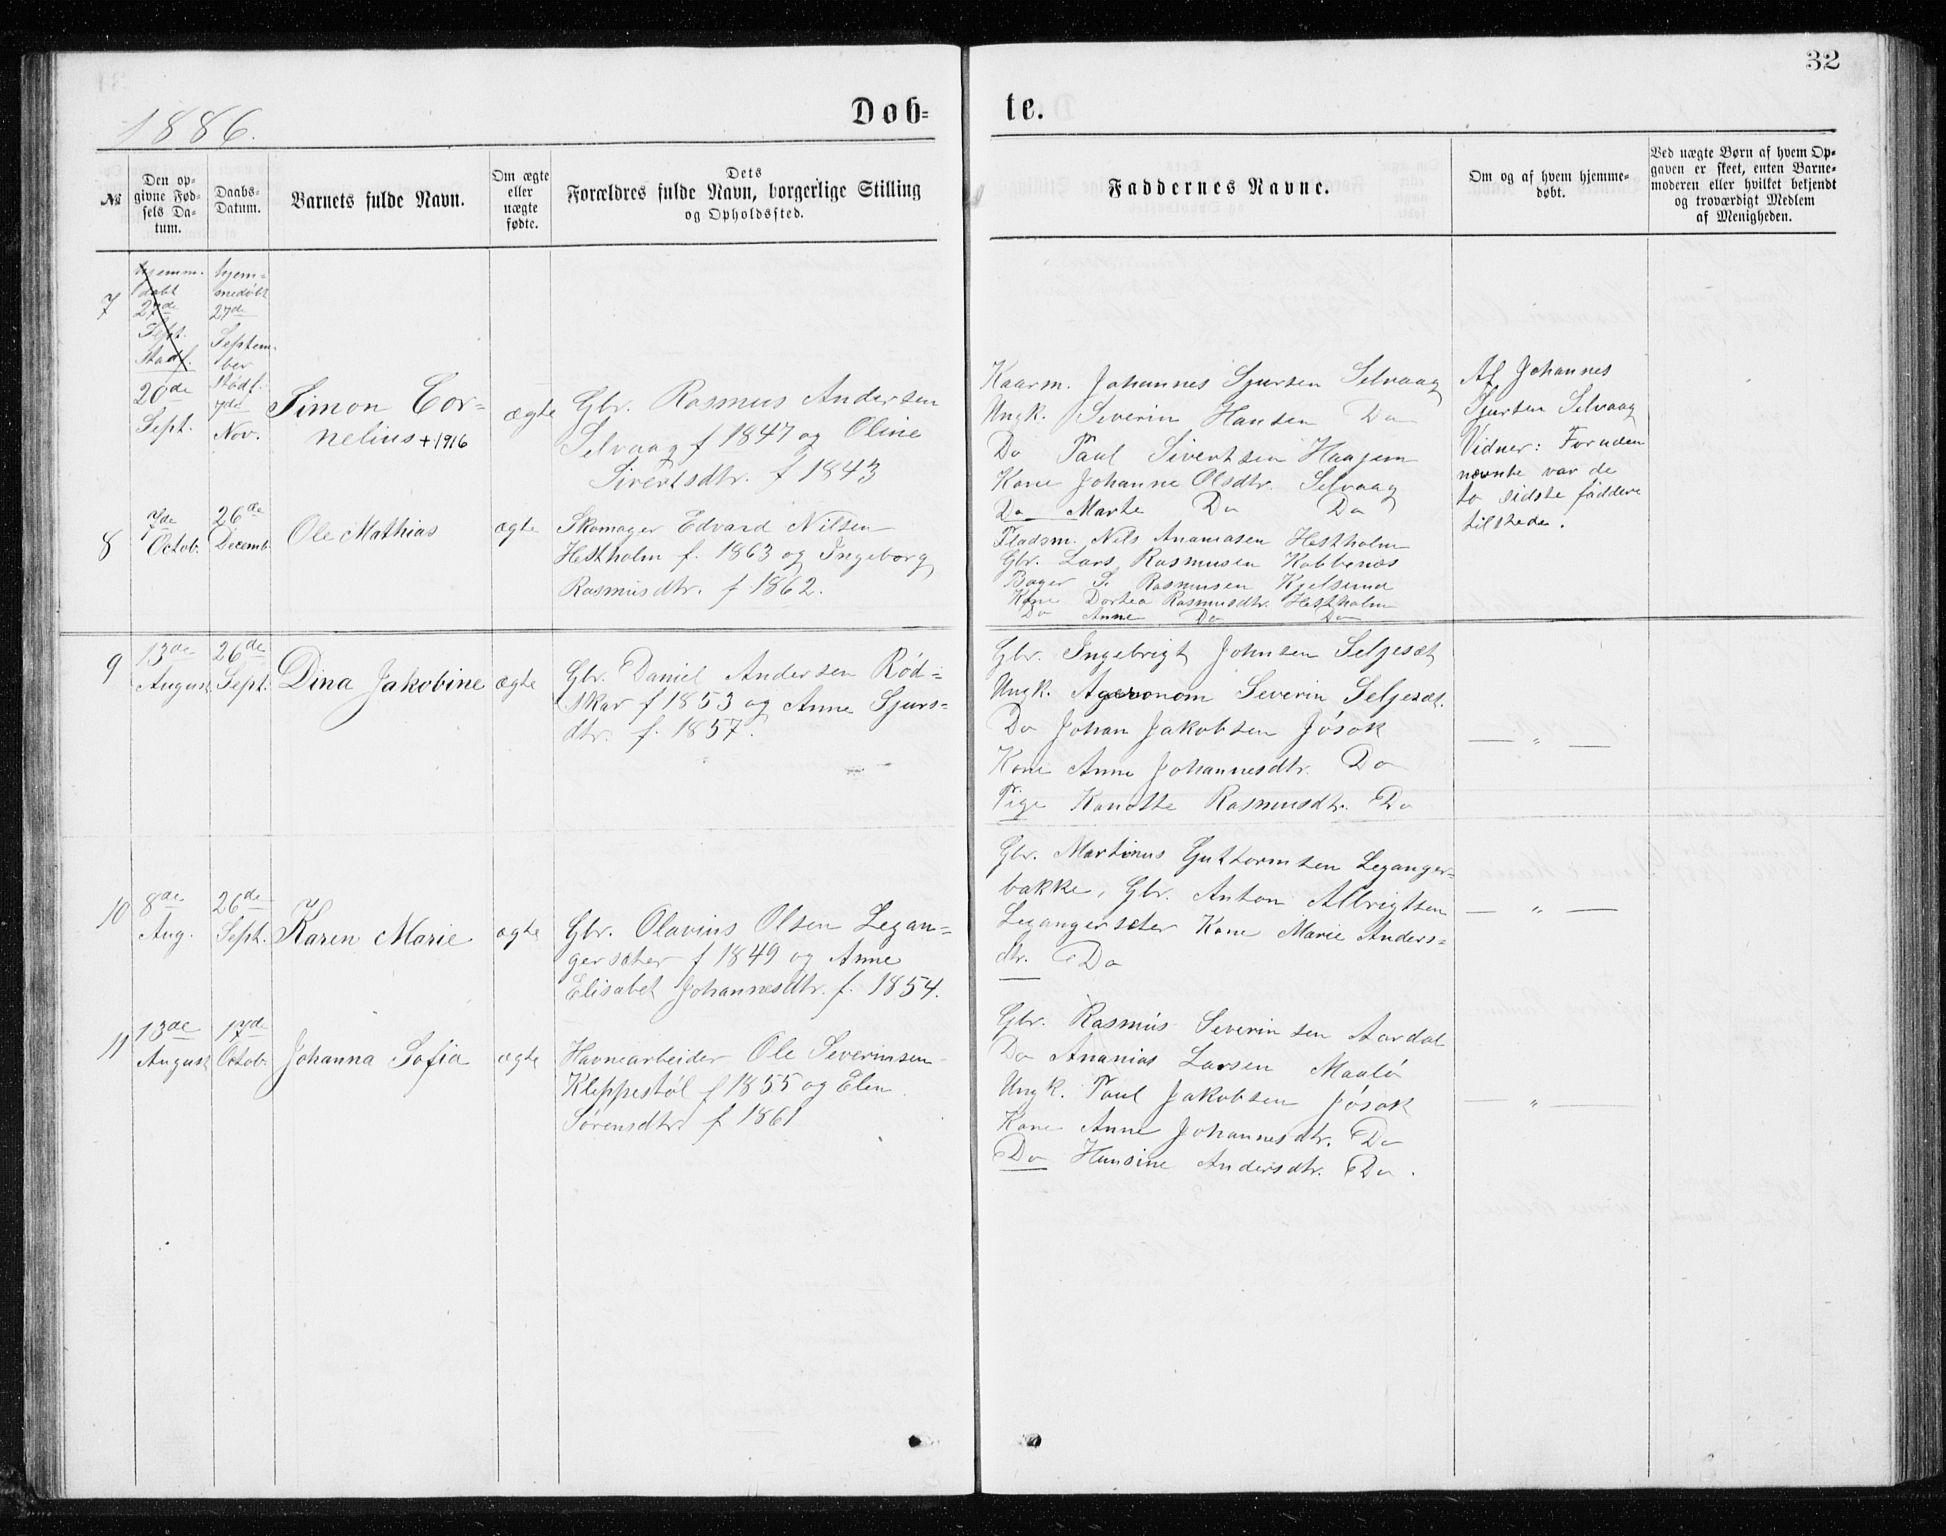 32
1886.
Døb=
te.
№
Den op=
givne Fød=
sels Da=
tum.
Daabs=
Datum.
Barnets fulde Navn.
Om ægte
eller
uægte
fødte.
Dets
Forældres fulde Navn, borgerlige Stilling
og Opholdssted.
Faddernes Navne.
Om og af hvem hjemme=
døbt.
Ved uægte Børn af hvem Op=
gaven er skeet, enten Barne=
moderen eller hvilket bekjendt
og troværdigt Medlem
af Menigheden.
7
hjemm.
døbt
27de
Sept.
Stadf.
20de
Sept.
hjem=
medøbt
27de
Septem=
ber
Stadf.
Nov.
Simon Cor=
nelius +1916
ægte
Gbr. Rasmus Andersen
Selvaag f 1847 og Oline
Sivertsdtr. f 1843
Kaarm. Johannes Sjursen Selvaag
Ungk. Severin Hansen Do
Do Paul Sivertsen Haagem
Kone Johanne Olsdtr. Selvaag
Do Marte Do Do
Af Johannes
Sjursen Selvaag
Vidner: Foruden
nævnte var de
to sidste faddere
tilstede.
8
7de
Octob.
26de
Decemb.
Ole Mathias
ægte
Skomager Edvard Nilsen
Hestholm f. 1863 og Ingeborg
Rasmusdtr. f 1862.
Pladsm. Nils Ananiasen Hestholm
Gbr. Lars Rasmusen Kobbenes
Bager S. Rasmusen Kjelsund
Kone Dortea Rasmusdtr. Hestholm
Do Anne Do Do
9
13de
August
26de
Sept.
Dina Jakobine
ægte
Gbr. Daniel Andersen Rød=
skar f 1853 og Anne Sjurs=
dtr. f. 1857.
Gbr. Ingebrigt Johnsen Seljeset
Ungk. Agronom Severin Seljeset.
Do Johan Jakobsen Jøsok
Kone Anne Johannesdtr. Do
Pige Kanutte Rasmusdtr. Do
— „ —
10
8de
Aug.
26de
Sept.
Karen Marie
ægte
Gbr. Olavius Olsen Legan=
gersæter f 1849 og Anne
Elisabet Johannesdtr. f. 1854.
Gbr. Martinus Guttormsen Leganger=
bakke, Gbr. Anton Albrigtsen
Legangersæter Kone Marie Anders=
dtr. Do
— „ —
11
13de
August
17de
Octob.
Johanna Sofia
ægte
Havnearbeider Ole Severinsen
Kleppestøl f 1855 og Elen
Sørensdtr. f 1861
Gbr. Rasmus Severinsen Aardal
Do Ananias Larsen Maalø
Ungk. Paul Jakobsen Jøsok
Kone Anne Johannesdtr. Do
Do Hansine Andersdtr. Do.
— „ —